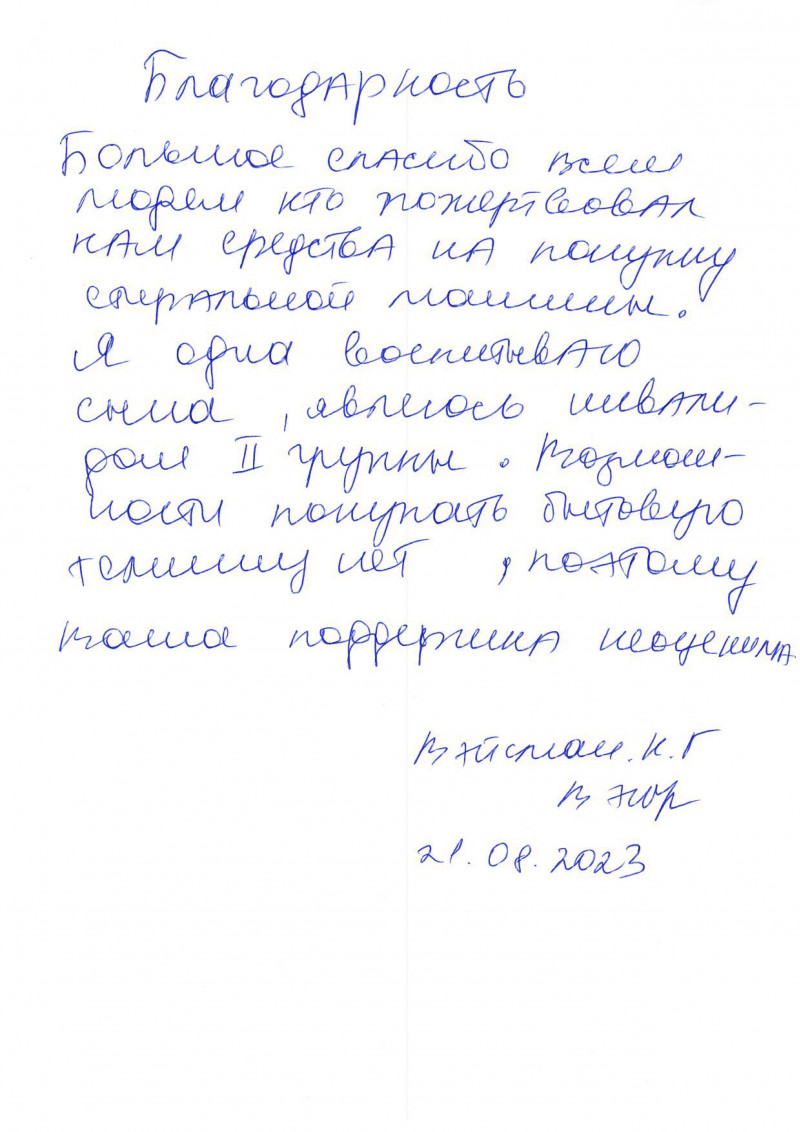 Благодарность
Большое спасибо всем
людям кто пожертвовал
нам средства на покупку
стиральной машины.
Я одна воспитываю
сына, являюсь инвали-
дом II группы. Возмож-
ности покупать бытовую
технику нет, поэтому
ваша поддержка неоценима
Вэйсман. К. Г
21.08.2023